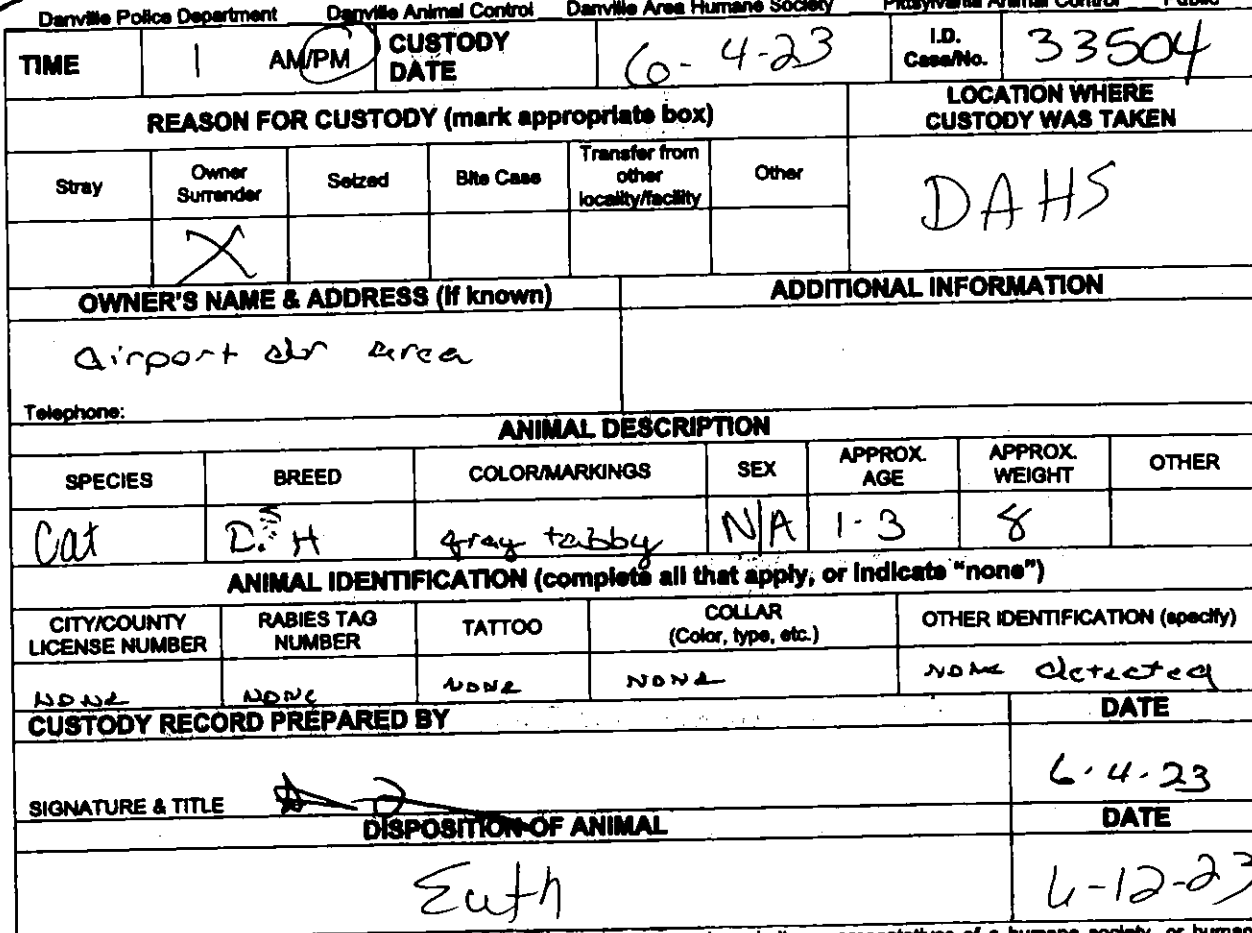 Danville Police Department Danville Animal Control Danville Area Humane Society Pittsylvania Animal Control Public
TIME 1 AM/PM CUSTODY DATE 6-4-23 I.D. Case/No. 33504
REASON FOR CUSTODY (mark appropriate box) LOCATION WHERE CUSTODY WAS TAKEN
Stray Owner Surrender Seized Bite Case Transfer from other locality/facility Other DAHS
X
OWNER'S NAME & ADDRESS (If known) ADDITIONAL INFORMATION
airport dr area
Telephone:
ANIMAL DESCRIPTION
SPECIES BREED COLOR/MARKINGS SEX APPROX. AGE APPROX. WEIGHT OTHER
Cat DSH gray tabby N/A 1-3 8
ANIMAL IDENTIFICATION (complete all that apply, or indicate "none")
CITY/COUNTY LICENSE NUMBER RABIES TAG NUMBER TATTOO COLLAR (Color, type, etc.) OTHER IDENTIFICATION (specify)
none none none none none detected
CUSTODY RECORD PREPARED BY DATE
SIGNATURE & TITLE 6.4.23
DISPOSITION OF ANIMAL DATE
Euth 6-12-23
of a humane society, or